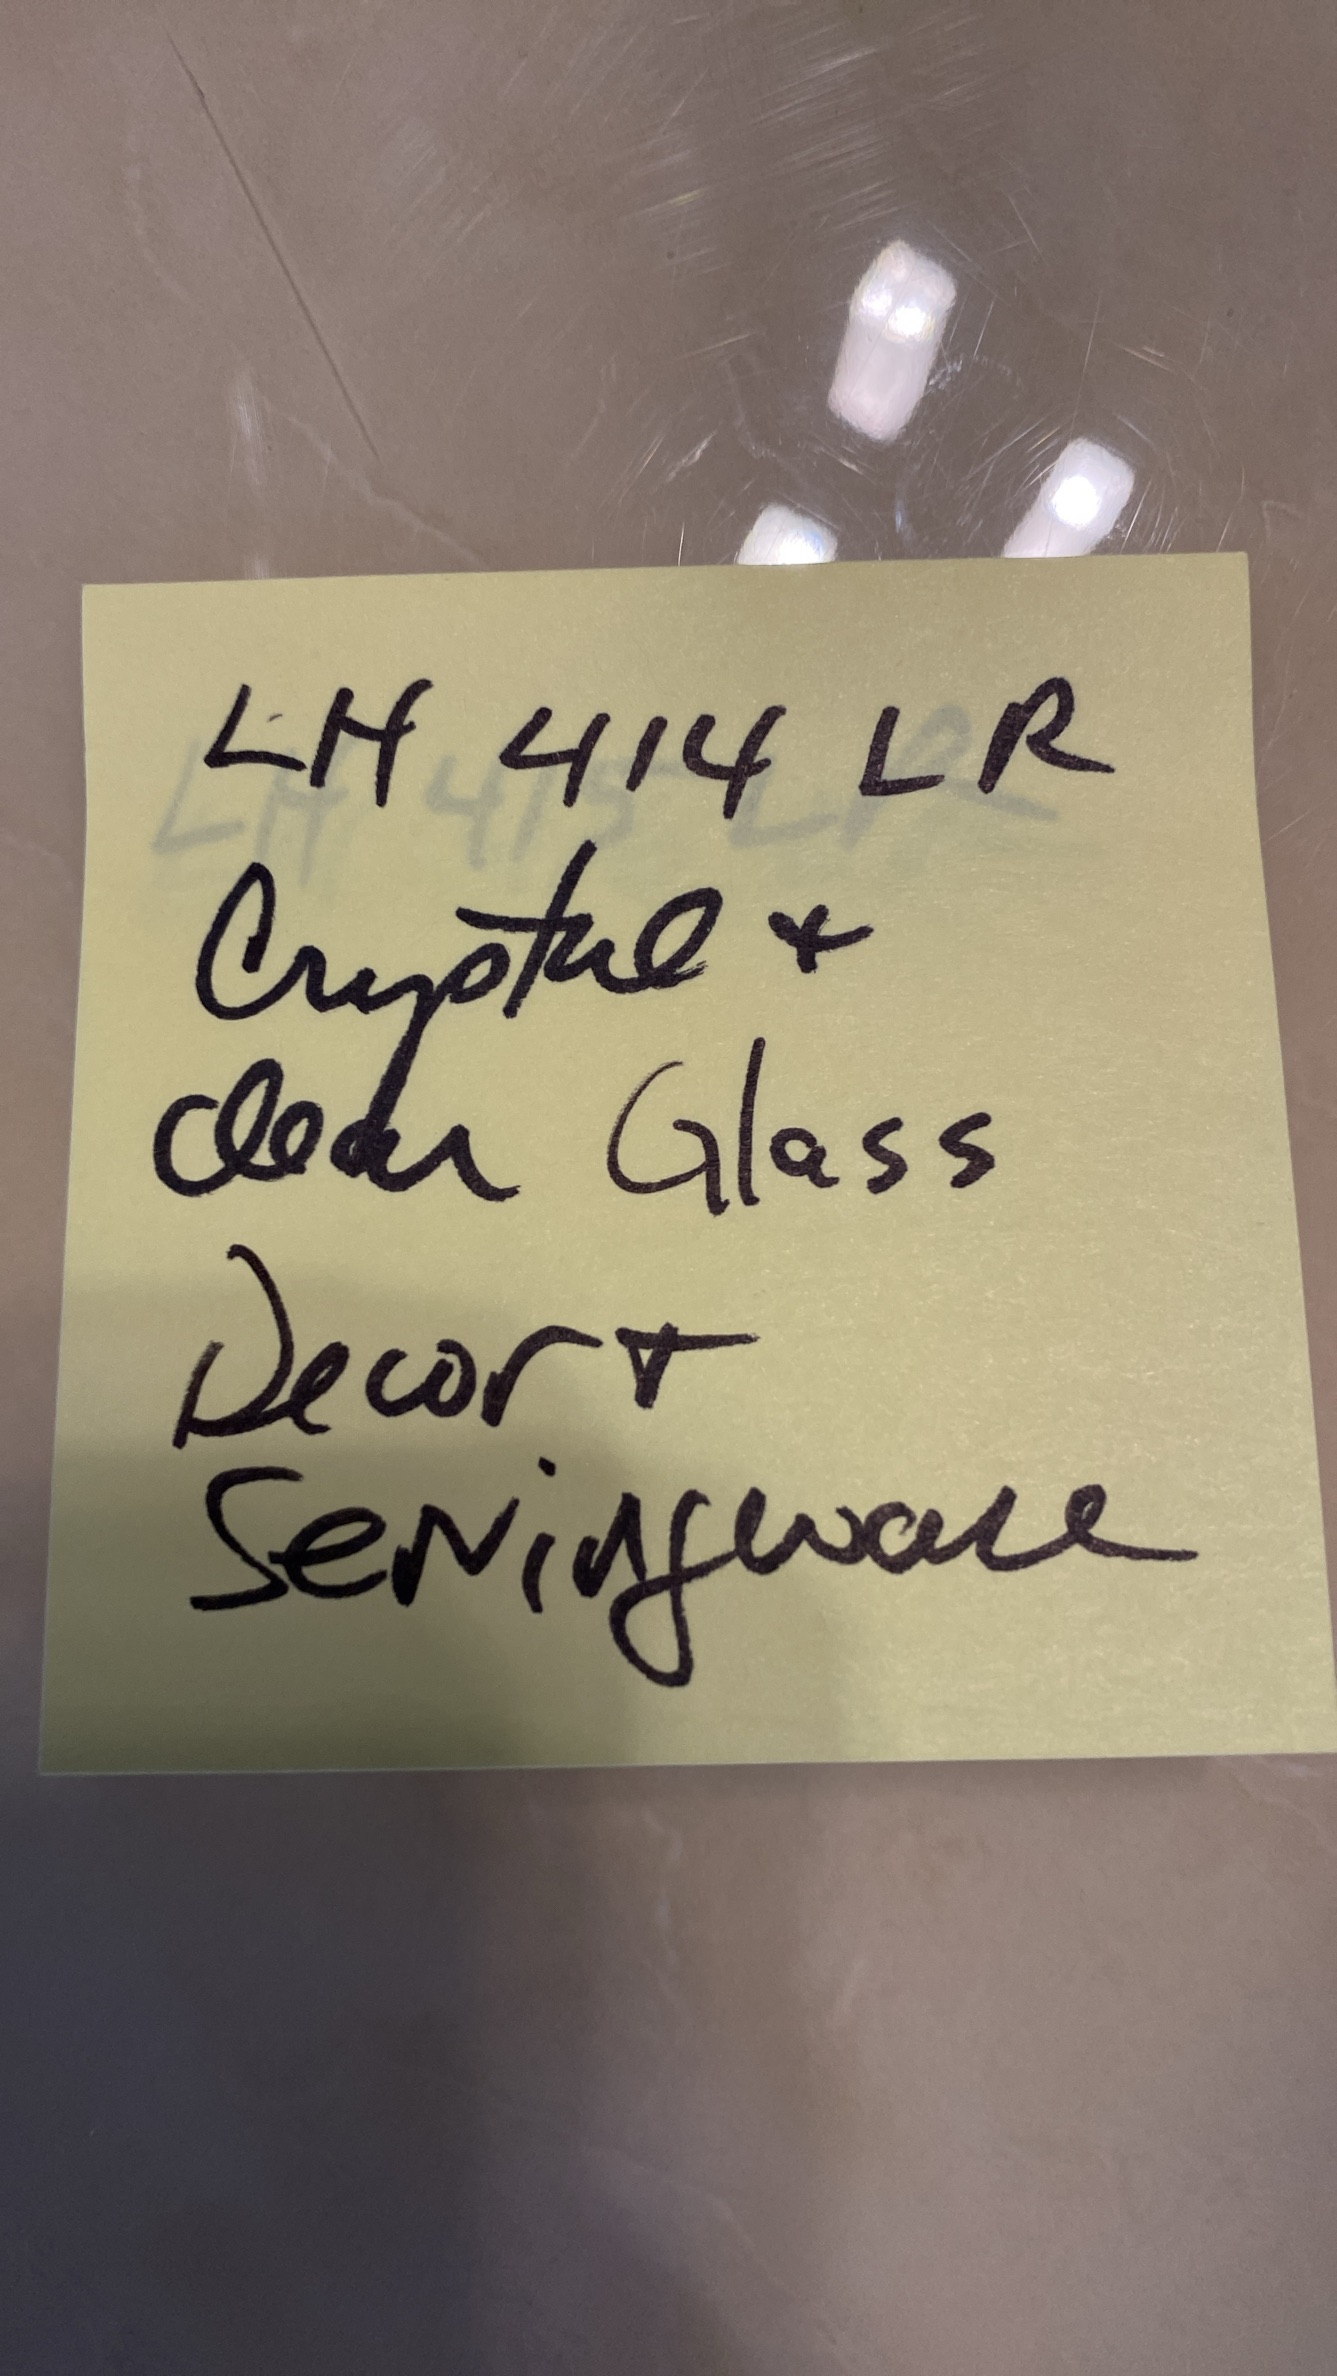 LH 414 LR
LH 415 LR
Crystal +
clear Glass
Decor +
Servingware